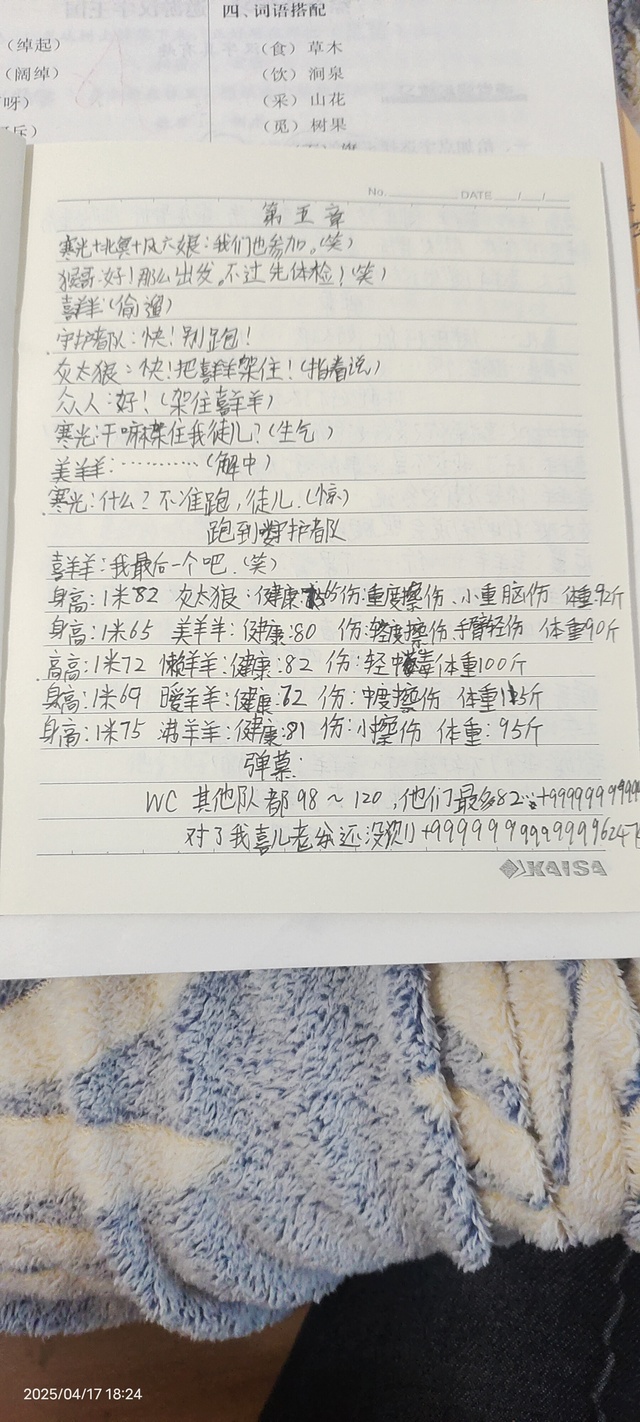 四、词语搭配
（绰起）
（食）草木
（阔绰）
（饮）涧泉
呀）
（采）山花
斥）
（觅）树果
No. DATE / /
第五章
寒光+北奥+风六娘：我们也参加。（笑）
猴哥：好！那么出发。不过先体检！（笑）
喜羊羊（偷溜）
守护者队：快！别跑！
灰太狼：快！把喜羊羊架住！（指着说）
众人：好！（架住喜羊羊）
寒光：干嘛架住我徒儿？（生气）
美羊羊：…………（解中）
寒光：什么？不准跑，徒儿.（惊）
跑到守护者队
喜羊羊：我最后一个吧.（笑）
身高：1米82 灰太狼：健康：65伤：重度擦伤、小重脑伤 体重：92斤
身高：1米65 美羊羊：健康：80 伤：轻度擦伤、手臂轻伤 体重90斤
高高：1米72 懒羊羊：健康：82 伤：轻中毒 体重100斤
身高：1米69 暖羊羊：健康：72 伤：中度擦伤 体重115斤
身高：1米75 沸羊羊：健康：81 伤：小擦伤 体重：95斤
弹幕：
WC 其他队都98～120，他们最多82
对了我喜儿老爷还没测
KAISA
2025/04/17 18:24